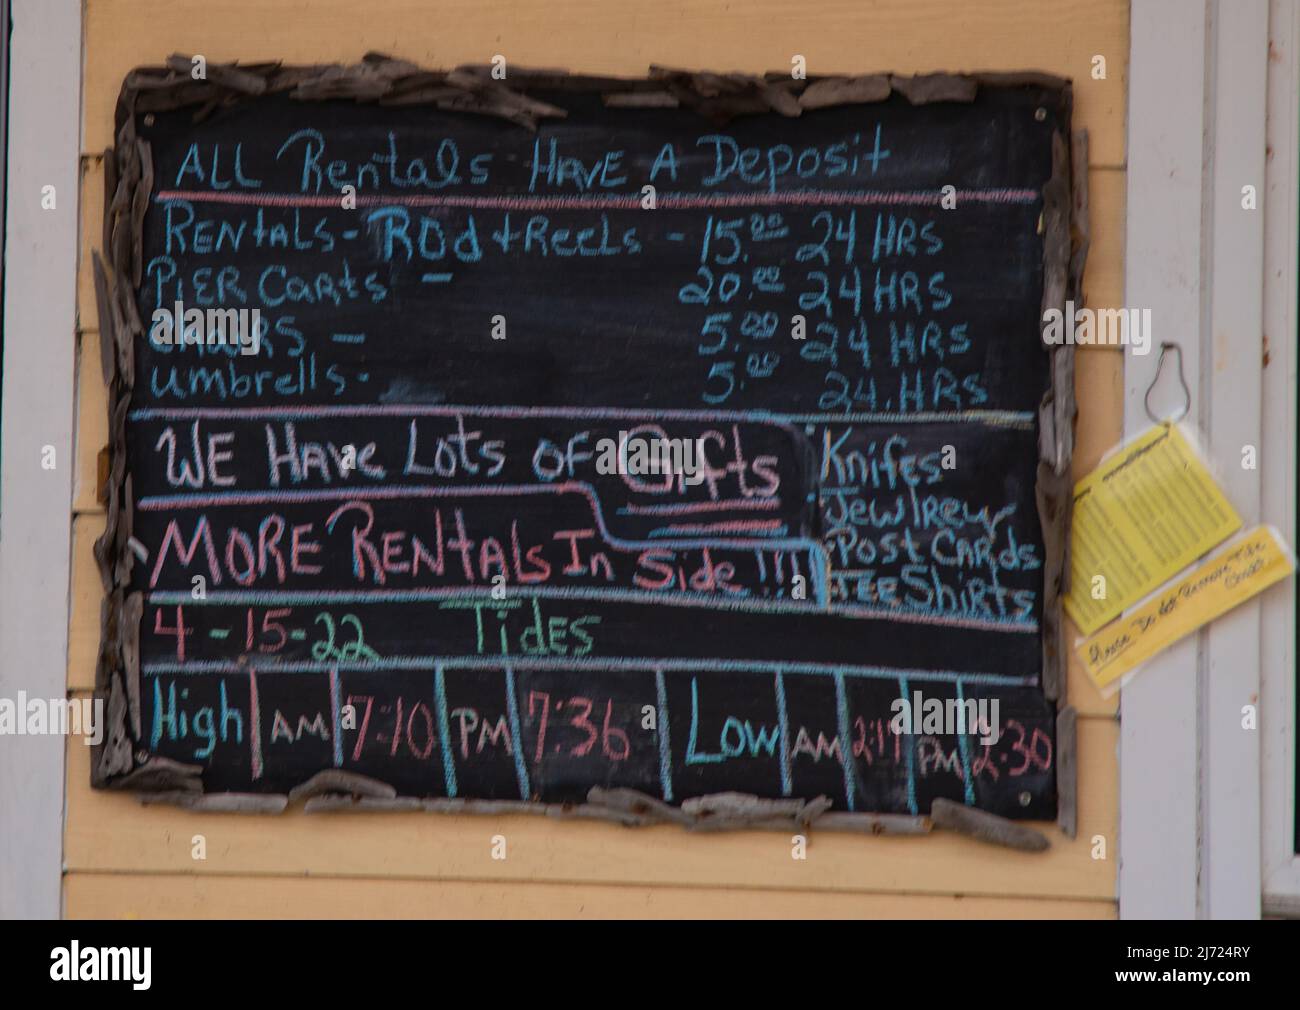 ALL Rentals HAVE A Deposit
RENtALS - ROd + Reels - 15.00 24 HRS
PIER Carts - 20.00 24 HRS
CHAIRS - 5.00 24 HRS
umbrells - 5.00 24. HRS
WE HAVe LoTs OF Gifts
MORE RENtALs In Side !!!
Knifes
Jewlrey
Post CARds
TEE Shirts
4-15-22 TiDES
High AM 7:10 PM 7:36 Low AM 2:17 PM 2:30
Please Do Not Remove Tide
alamy
Image ID: 2J724RY
www.alamy.com